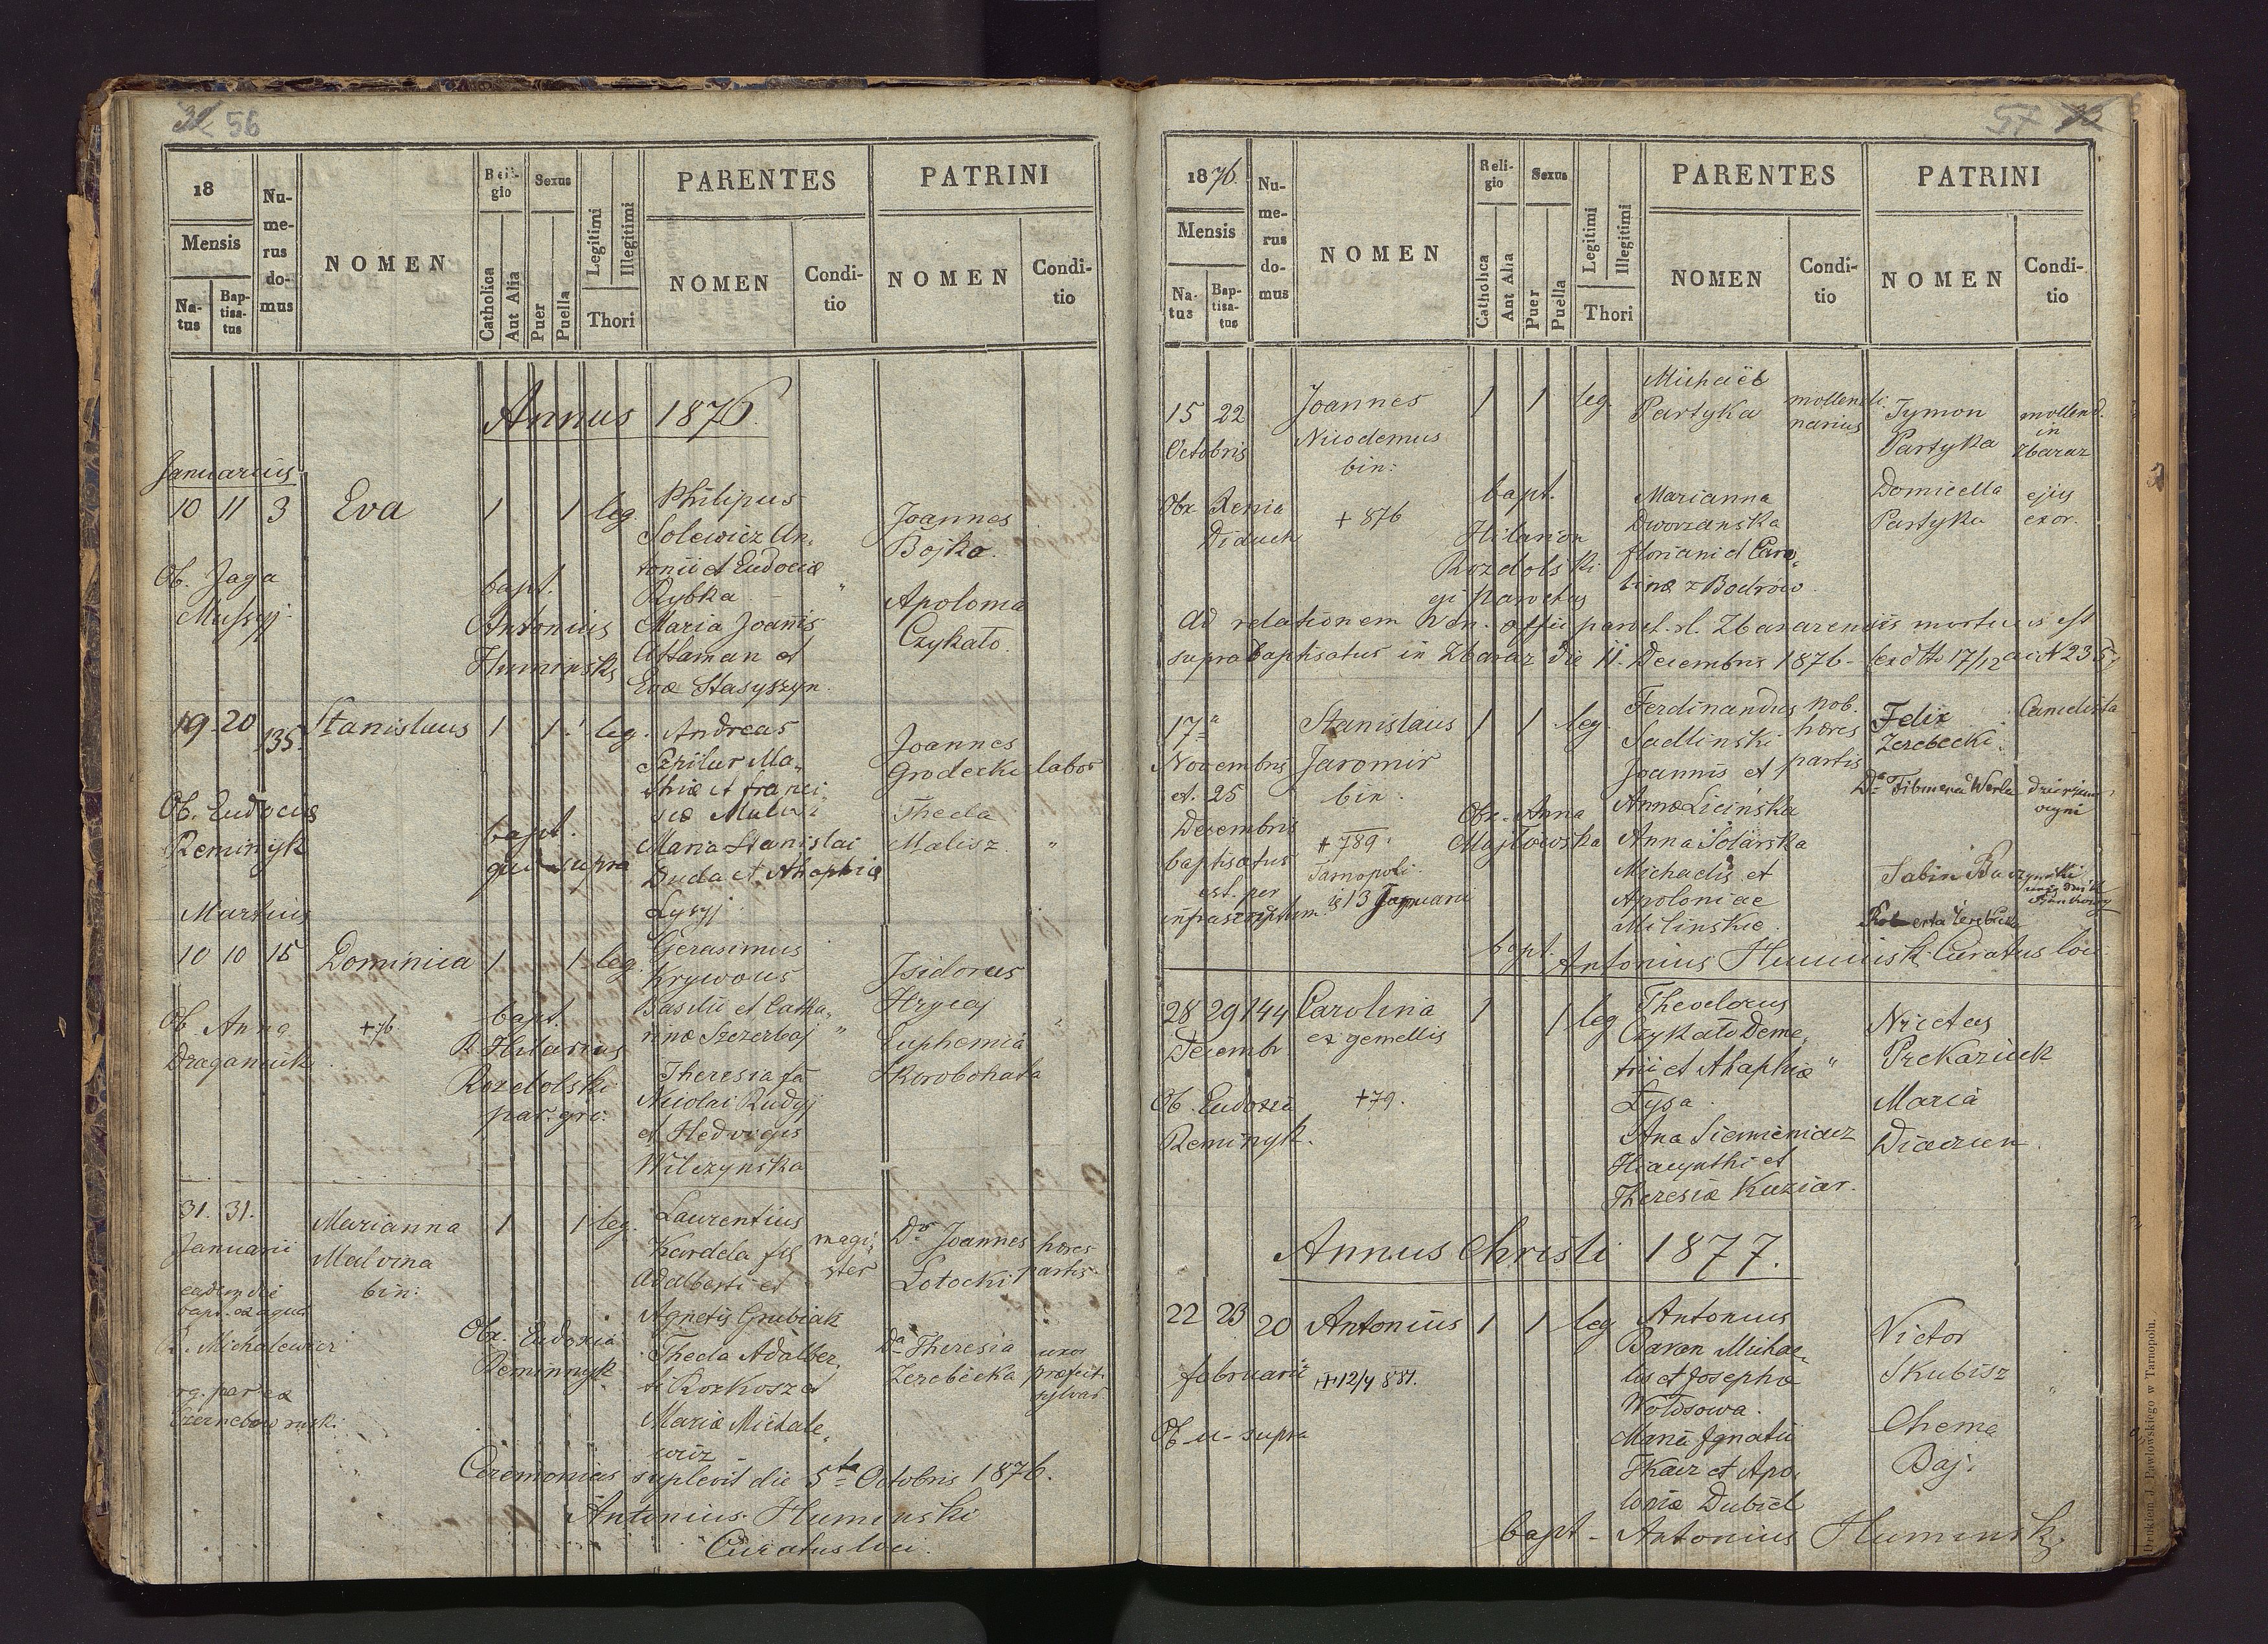 56
18
Mensis
Natus
Baptisatus
Numerus domus
NOMEN
Religio
Catholica
Aut Alia
Sexus
Puer
Puella
Legitimi
Illegitimi
Thori
PARENTES
NOMEN
Conditio
PATRINI
NOMEN
Conditio
Annus 1876.
Januarius
10 11 3 Eva 1 1 leg.
Philipus
Solewicz An,
tonii et Eudociæ
Rybka
Maria Joannis
Attaman et
Evæ Stasyszyn.
Joannes
Bojko.
Apolonia
Czykało.
Ob. Jaga
bapt.
Antonius
Huminski
19 20 135. Stanislaus 1 1 leg.
Andreas
Szpilur Ma,
thiæ et franci,
scæ
Maria Stanislai
Duda et Ahaphiæ
Łysyj.
Joannes
Grodecki labor
Thecla
Malisz "
Ob. Eudocia
Reminyk
bapt.
qui supra
Martius
10 10 15 Dominica 1 1 leg.
+76
Gerasimus
Krywous
Basilii et Catha,
rinæ Szczerbaj "
Theresia fa
Nicolai Rudyj
et Hedvigis
Wilczynska
Isidorus
Hrycaj
Euphemia
Skorobohata
Ob. Anna
Draganiuk
bapt.
R. Hilarius
Rozdolski
par. gr.
31. 31.
Januarii
eadem die
bapt. ex aqua
Michalewicz
Marianna
Malvina
bin:
1 1 leg.
Laurentius
Kardela fil
Adalberti et
Agnetis Grubiak
Thecla Adalber,
ti Rozkosz et
Mariæ Michale,
wicz
magi,
ster
Dr Joannes hæres
Łotocki partis
Da Theresia uxor
Zerebecka præfect.
sylvar.
Obx. Eudoxia
Reminnyk
Ceremonias suplevit die 5ta Octobris 1876.
Antonius Huminski
Curatus loci.
57
1876.
Mensis
Natus
Baptisatus
Numerus domus
NOMEN
Religio
Catholica
Aut Alia
Sexus
Puer
Puella
Legitimi
Illegitimi
Thori
PARENTES
NOMEN
Conditio
PATRINI
NOMEN
Conditio
15 22
Octobris
Joannes
Nicodemus
bin:
+ 876
1 1 leg.
Michaël
Partyka
Marianna
Dworzanska
floriani et Caro,
linæ z Bodrów.
Tymon
Partyka
Domicella
Partyka
mollend.
in
Zbaraz
ejus
exor.
Obx Xenia
Diduch
bapt.
Hilarion
Rozdolski
Parochus
Ad relationem Ven. offic. paroch. r.l. Zbarazensis mortuus est
supra baptisatus in Zbaraz die 11. Decembris 1876
17a
Novembris
et. 25
Decembris
baptisatus
est per
infrascriptum
Stanislaus
Jaromir
bin:
+ 789.
Tarnopoli
13 Januarii
1 1 leg.
Ferdinandus
Sadlinski
Joannis et
Annæ Licinska
Anna Solarska
Michaelis et
Apoloniae
Milinskie
nob.
hæres
partis
Felix
Zerebecki.
Obx. Anna
bapt. Antonius Huminski Curatus loci
28 29 144 Carolina 1 1 leg
Decembr.
ex gemellis
+79.
Theodorus
Czykało Deme,
trii et Ahaphiæ "
Łysa.
Ana Siemieniacz
Hiacynthi et
Theresiæ Kuziar.
Nicetas
Prokaziuk
Maria
Ob. Eudoxia
Reminyk.
Annus Christi 1877.
22 23 20 Antonius 1 1 leg
februarii
+12/4 881.
Antonius
Baran Michae,
lis et Josephæ
Wołosowa.
Maria Ignatii
Tkacz et Apo,
loniæ Dubiel
Victor
Skubisz
Chema
Baj.
Ob-u-supra
bapt - Antonius Huminski
Drukiem J. Pawłowskiego w Tarnopolu.